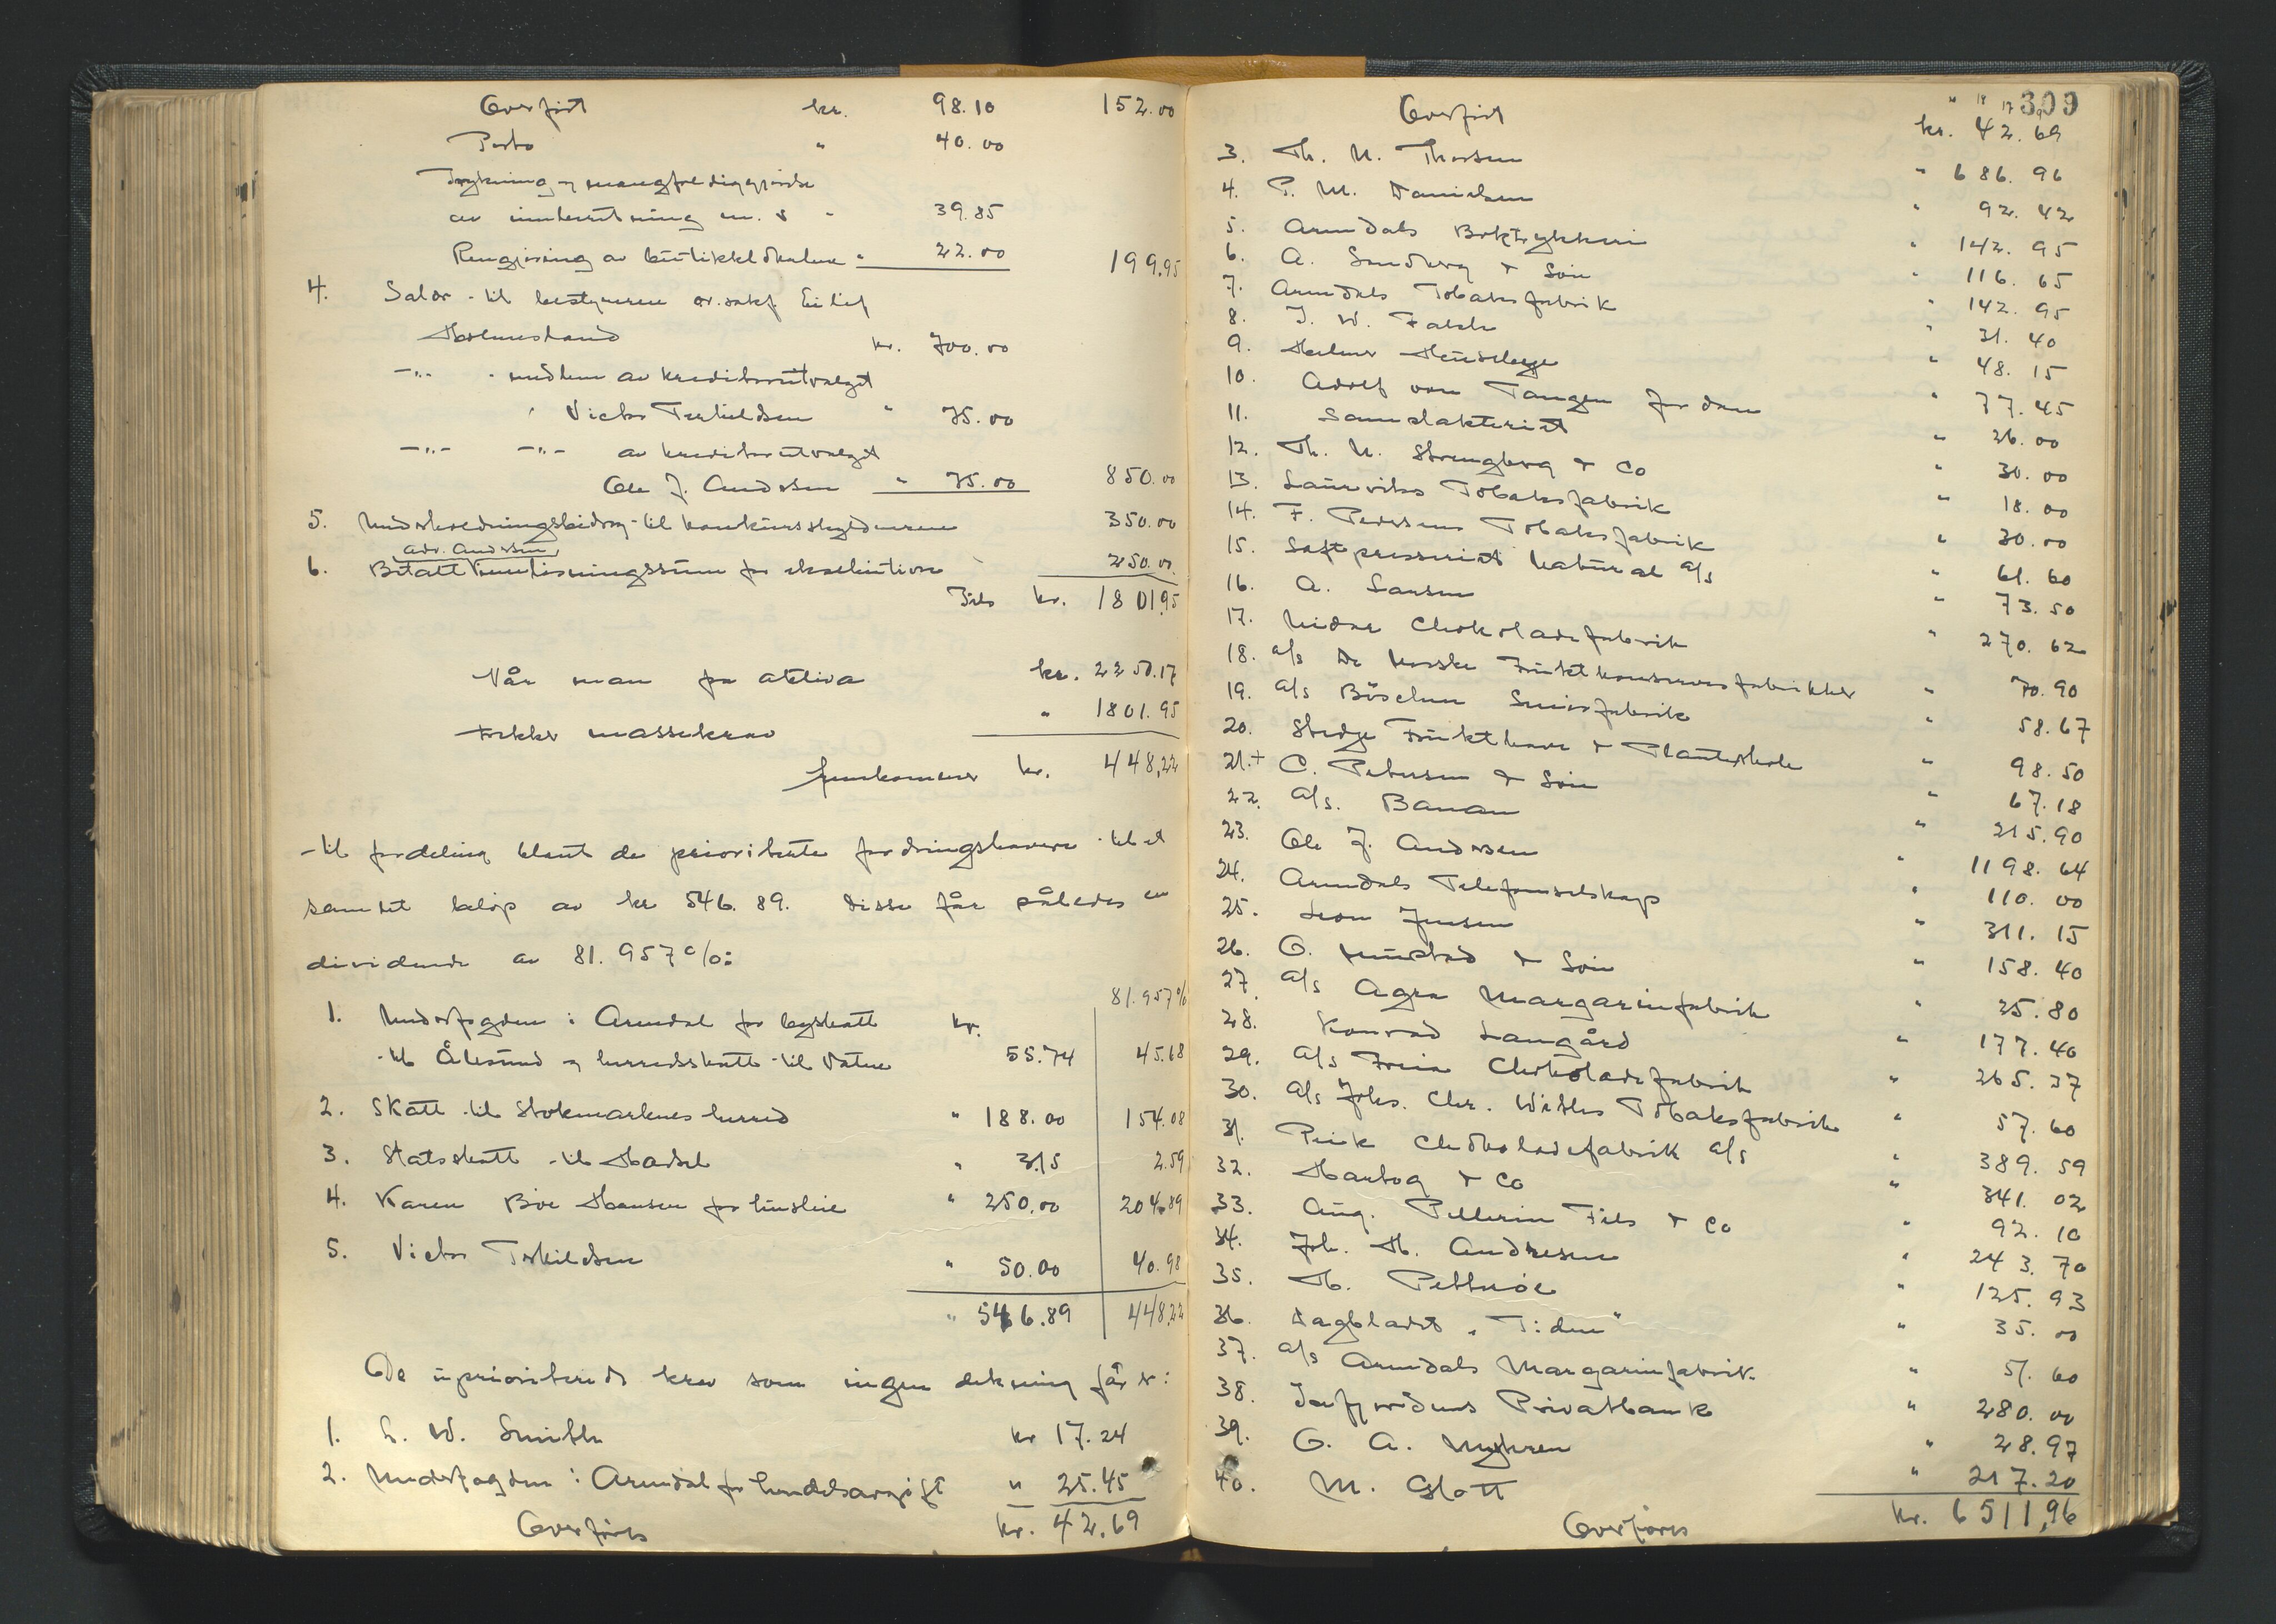 Overført kr. 98.10 152.00
Porto " 40.00
Trykning og mangfoldiggjørelse
av innberetning m. v. " 39.85
Rengjøring av butikklokalene " 22.00 199.95
4. Salær til bestyreren or.sakf. Eilif
Holmesland kr. 700.00
-"- medlem av kreditorutvalget
Victor Terkildsen " 75.00
-"- -"- av kreditorutvalget
Ole J. Andersen " 75.00 850.00
5. Underholdningsbidrag til konkursskyldneren 350.00
adv. Andersen
6. Betalt innløsningssum for eksekutivse 250.00
Tils kr. 1801.95
Når man fra aktiva kr. 2250.17
trekker massekrav " 1801.95
fremkommer kr. 448,22
til fordeling blant de prioriterte fordringshavere til et
samlet beløp av kr 546.89. Disse får således en
dividende av 81.957%:
81.957%
1. Underfogden i Arendal for byskatt kr.
til Ålesund og herredsskatt til Vatne 55.74 45.68
2. Skatt til Stokmarknes herred " 188.00 154.08
3. Statsskatt til Hadsel " 3.15 2.59
4. Karen Bøe Hansen for husleie " 250.00 204.89
5. Victor Terkildsen " 50.00 40.98
" 546.89 448.22
De uprioriterte krav som ingen dekning får er:
1. L. W. Smith kr 17.24
2. Underfogden i Arendal for handelsavgift " 25.45
Overføres kr. 42.69
309
Overført kr. 42.69
3. Th. N. Thorsen " 686.96
4. P. M. Danielsen " 92.42
5. Arendals Boktrykkeri " 142.95
6. A. Sundberg & Søn " 116.65
7. Arendals Tobaksfabrik " 142.95
8. J. W. Falch " 31.40
9. Helmer Hauselberger " 48.15
10. Adolf van Tangen Jordan " 77.45
11. Samlakteriet " 26.00
12. Th. N. Strengberg & Co " 30.00
13. Laurviks Tobaksfabrik " 18.00
14. F. Petersens Tobaksfabrik " 30.00
15. Saftpresseriet Natural a/s " 61.60
16. A. Larsen " 73.50
17. Nidar Chokoladefabrik " 270.62
18. a/s De Norske Fruktkonservesfabrikker " 70.90
19. a/s Böschen Seivsfabrik " 58.67
20. Stedje Frukthave & Planteskole " 98.50
21.+ C. Petersen & Søn " 67.18
22. a/s. Banan " 215.90
23. Ole J. Andersen " 1198.64
24. Arendals Telefonselskap " 110.00
25. Leon Jensen " 311.15
26. O. Mustad & Søn " 158.40
27. a/s Agra Margarinfabrik " 25.80
28. Konrad Langård " 177.40
29. a/s Freia Chokoladefabrik " 265.37
30. a/s Johs. Chr. Withes Tobaksfabrik " 57.60
31. Perik Chokoladefabrik a/s " 389.59
32. Hartog & Co " 341.02
33. Aug. Pellerin Fils & Co " 92.10
34. Joh. H. Andresen " 243.70
35. H. Petterøe " 125.93
36. Dagbladet "Tiden" " 35.00
37. a/s Arendals Margarinfabrik " 51.60
38. Isefjærdens Privatbank " 280.00
39. O. A. Myhren " 28.97
40. M. Glott " 217.20
Overføres kr. 6511,96